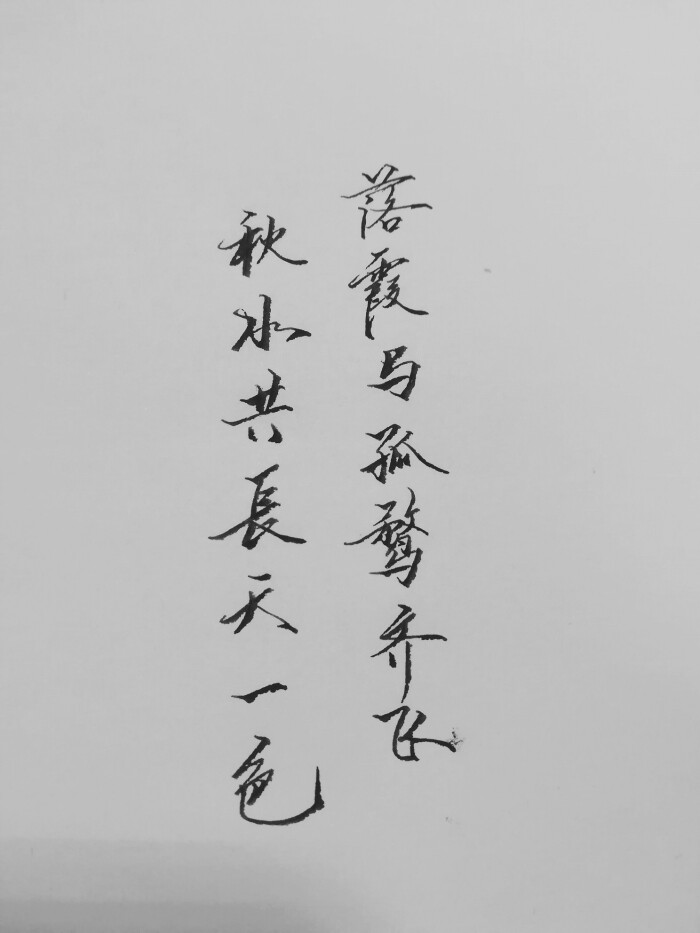 落霞与孤鹜齐飞
秋水共長天一色